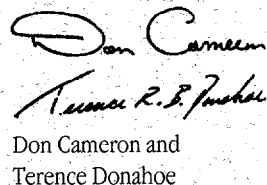 Don Cameron
Terence R. B. Donahoe
Don Cameron and
Terence Donahoe